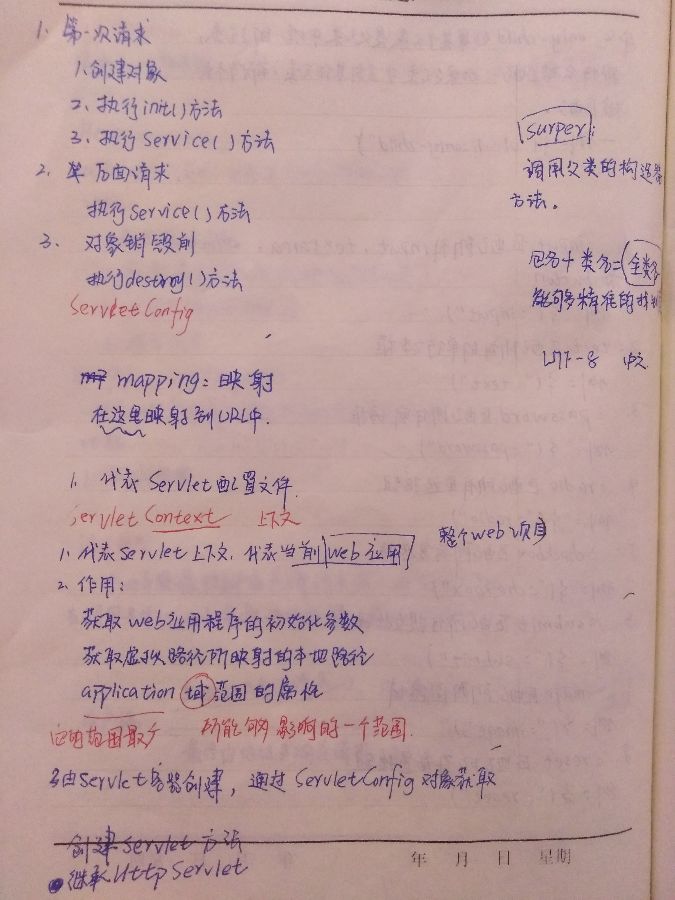 1. 第一次请求
1.创建对象
2、执行init()方法
3、执行Service()方法
2、后面请求
执行Service()方法
3、对象销毁前
执行destroy()方法
ServletConfig
surper:
调用父类的构造器
方法。
包名+类名=全类名
能够精准的找到
UTF-8 中文
mapping:映射
在这里映射到URL中.
1. 代表Servlet配置文件.
ServletContext 上下文
1.代表Servlet上下文,代表当前web应用 整个web项目
2.作用:
获取web应用程序的初始化参数
获取虚拟路径所映射的本地路径
application域范围的属性
它的范围最大 所能够影响的一个范围.
3由Servlet容器创建,通过ServletConfig对象获取
创建Servlet方法
继承HttpServlet
年 月 日 星期